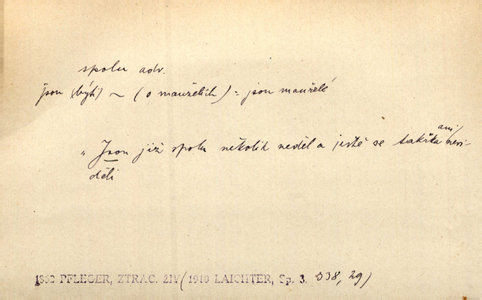 spolu adv.
jsou (býti) ~ (o manželích) = jsou manželé
ani/
„Jsou již spolu několik neděl a ještě se takřka nevi-
děli
1862 PFLEGER, ZTRAC. ŽIV (1910 LAICHTER, Sp. 3. 338, 29)